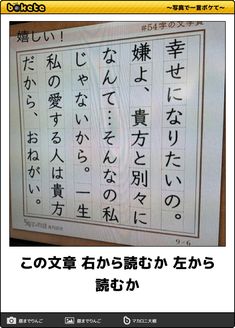 bokete
～写真で一言ボケて～
#54字の文学賞
幸せになりたいの。
嫌よ、貴方と別々に
なんて…そんなの私
じゃないから。一生
私の愛する人は貴方
だから、おねがい。
嬉しい！
9-6
この文章 右から読むか 左から
読むか
顔までりんご
顔までりんご
マカロニ大根